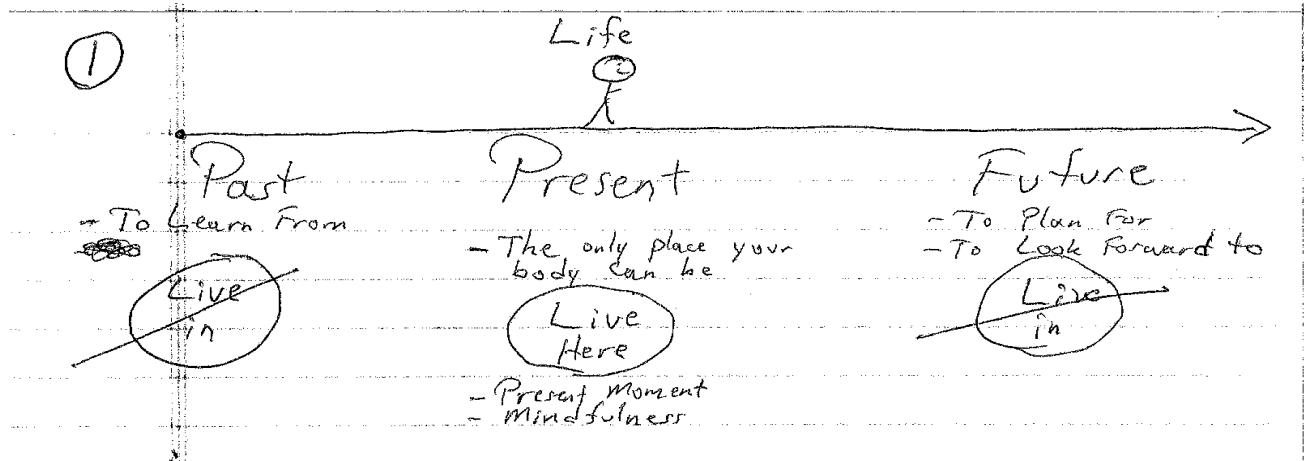 1
Life
Past
- To Learn From
Live
in
Present
- The only place your
body can be
Live
Here
- Present Moment
- Mindfulness
Future
- To Plan For
- To Look Forward to
Live
in